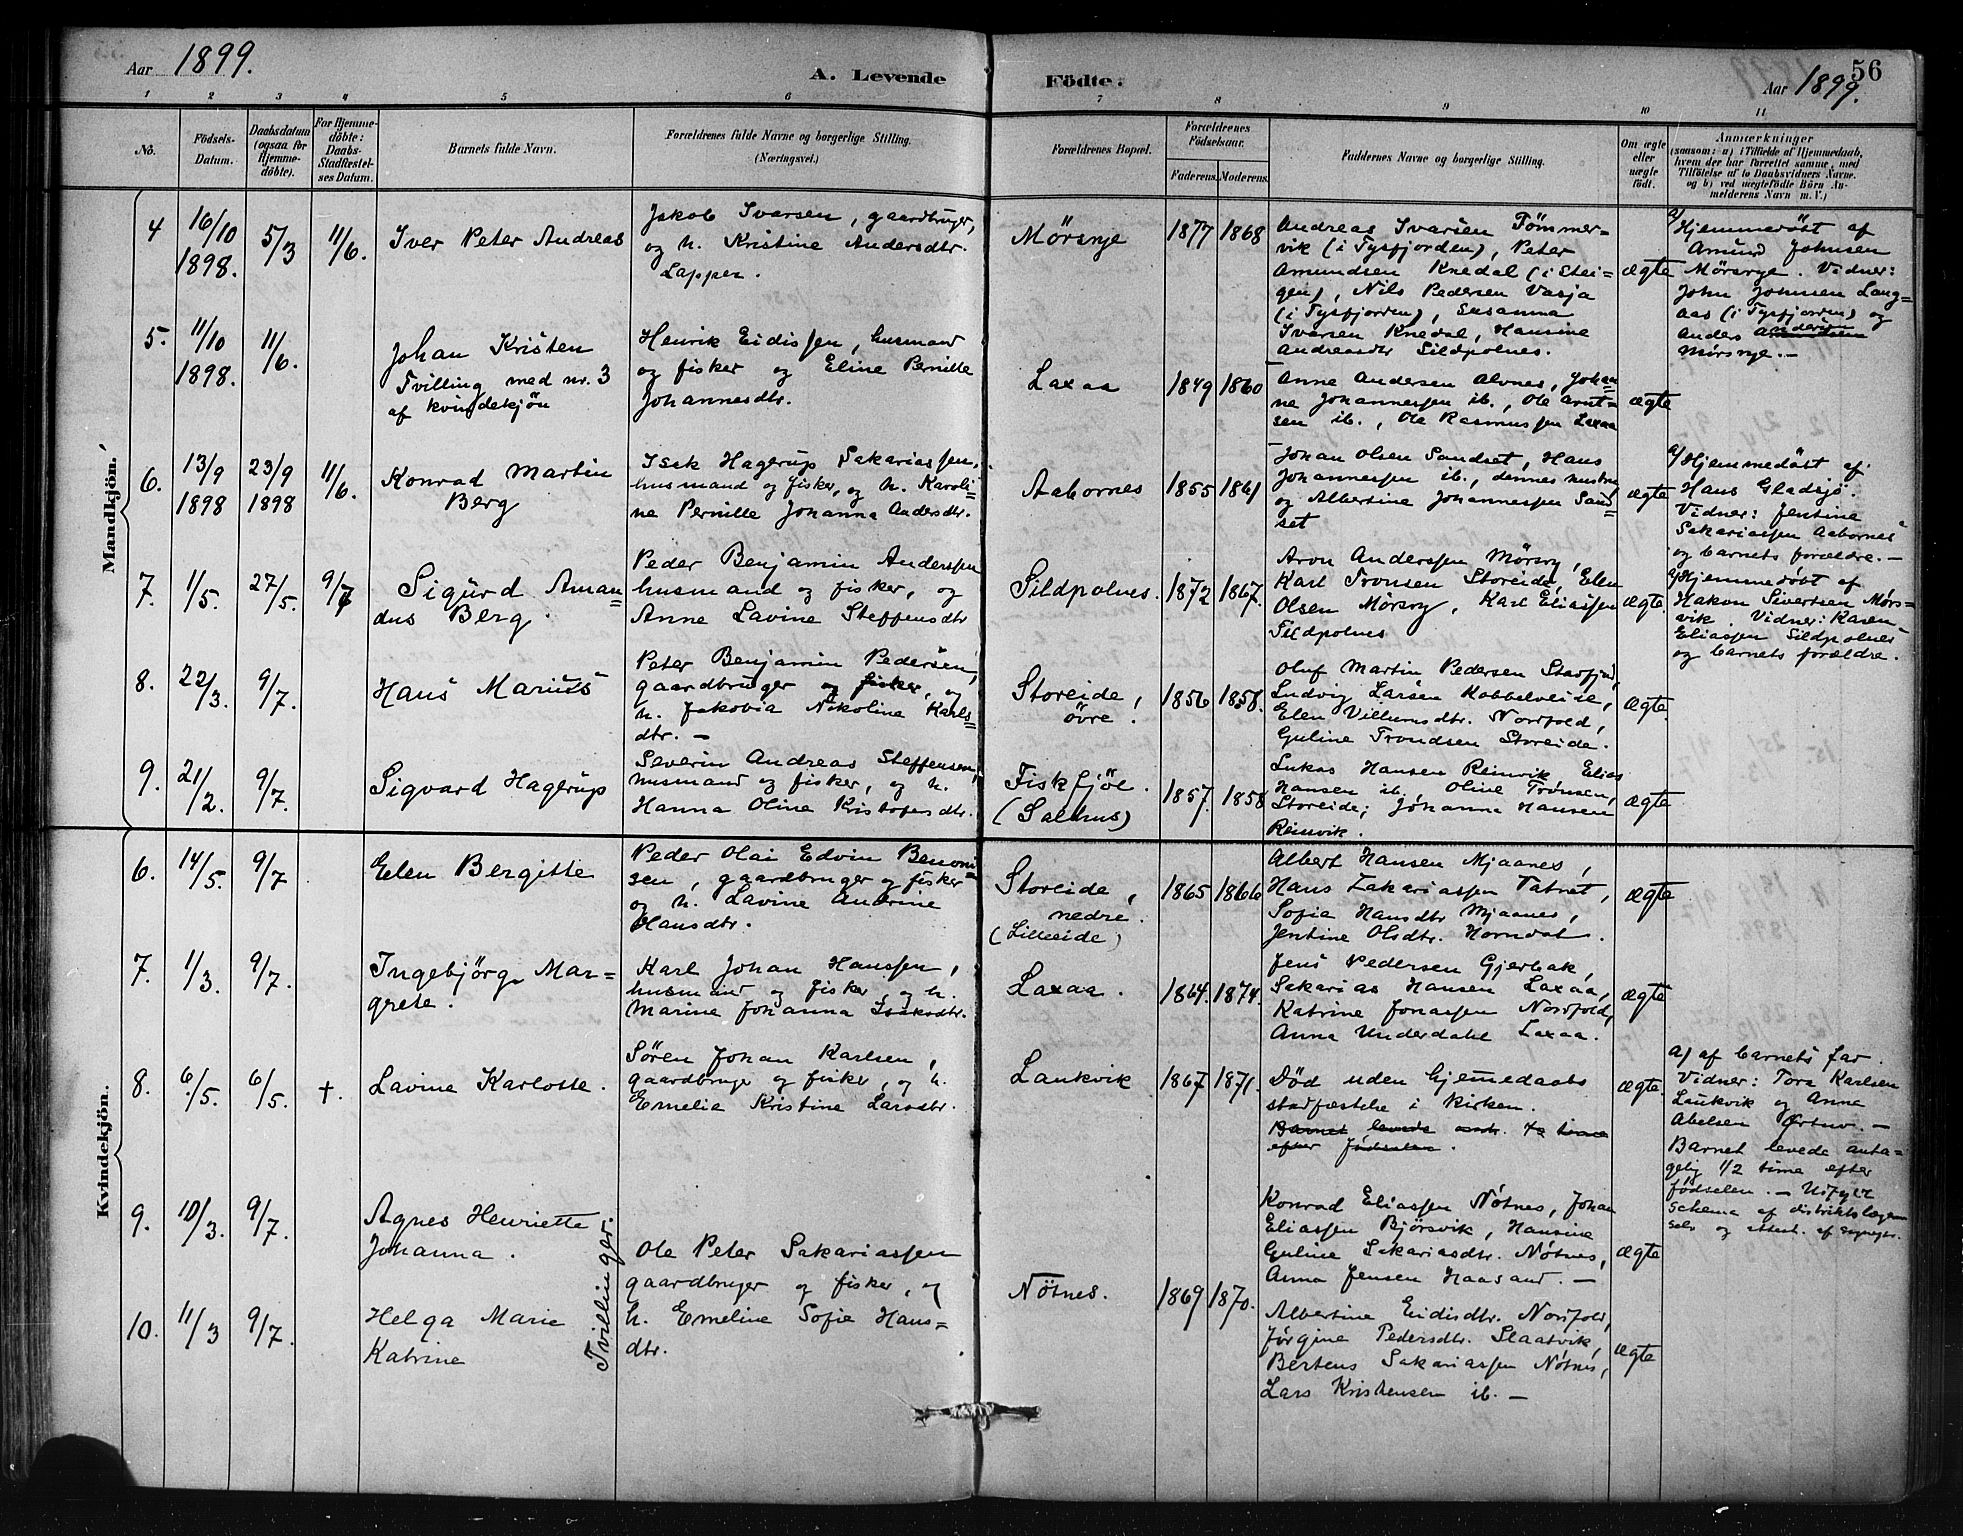 Aar 1899.
A. Levende
Födte.
56
Aar 1899.
1 2 3 4 5 6 7 8 9 10 11
No.
Födsels-
Datum.
Daabsdatum
(ogsaa for
Hjemme-
döbte).
For Hjemme-
döbte:
Daabs-
Stadfæstel-
ses Datum.
Barnets fulde Navn.
Forældrenes fulde Navne og borgerlige Stilling.
(Næringsvei.)
Forældrenes Bopæl.
Forældrenes
Födselsaar.
Faderens. Moderens.
Faddernes Navne og borgerlige Stilling.
Om ægte
eller
uægte
födt.
Anmærkninger
(saasom: a) i Tilfælde af Hjemmedaab,
hvem der har forrettet samme, med
Tilföielse af to Daabsvidners Navne.
og b) ved uægtefödte Börn An-
melderens Navn m. V.)
Mandkjön.
4
16/10
1898.
5/3
11/6.
Iver Peter Andreas
Jakob Ivarsen, gaardbruger,
og h. Kristine Andersdtr.
Lapper.
Mörsrye
1877 1868
Andreas Ivarsen Tömmer=
vik (i Tysfjorden), Peter
Amundsen Knedal (i Stei=
gen), Nils Pedersen Vasja
(i Tysfjorden), Susanna
Ivarsen Knedal, Hansine
Andreasdtr Sildpolnes.
ægte
a/ Hjemmedöbt af
Amund Johnsen
Mörsrye. Vidner:
John Johnsen Lang=
aas (i Tysfjorden) og
Anders
Mörsrye. –
5.
11/10
1898.
11/6.
Johan Kristen
Tvilling med nr. 3
af kvindekjön
Henrik Eidissen, husmand
og fisker og Eline Pernille
Johannesdtr.
Laxaa
1849 1860
Anne Andersen Alvnes, Johan=
ne Johannessen ib., Ole Arnt=
sen ib., Ole Rasmussen Laxaa
ægte
6.
13/9
1898
23/9
1898
11/6.
Konrad Martin
Berg
Isak Hagerup Sakariassen,
husmand og fisker, og h. Karoli=
ne Pernille Johanna Andersdtr.
Aabornes
1855 1861
Johan Olsen Sandset, Hans
Johannessen ib., dennes hustru
og Albertine Johannessen Sand=
set
ægte
a/ Hjemmedöbt af
Hans Gladsjö.
Vidner: Jentine
Sakariassen Aabornes
og barnets forældre. –
7.
1/5.
27/5.
9/7
Sigurd Aman=
dus Berg.
Peder Benjamin Anderssen
husmand og fisker, og
Anne Lavine Steffensdtr
Sildpolnes.
1872 1867.
Aron Anderssen Mörsry,
Karl Tronsen Storeide, Elen
Olsen Mörsry, Karl Eliassen
Sildpolnes
ægte.
a/ Hjemmedöbt af
Hakon Sivertsen Mörs=
vik. Vidner: Karen
Eliassen Sildpolnes
og barnets forældre.
8.
22/3.
9/7.
Hans Marius
Peter Benjamin Pedersen,
gaardbruger og fisker, og
h. Jakobia Nikoline Karls=
dtr. –
Storeide,
övre.
1856 1858.
Oluf Martin Pedersen
Ludvig Larsen Kobbelveide,
Elen Villumsdtr. Nordfold,
Guline Trondsen Storeide.
ægte.
9.
21/2.
9/7.
Sigvard Hagerup
Severin Andreas Steffensen,
husmand og fisker, og h.
Hanna Oline Kristofersdtr.
Fiskfjöl.
(Salhus)
1857. 1858
Lukas Hansen Reinvik, Elias
Hansen ib. Oline Tronsen,
Storeide; Johanna Hansen
Reinvik.
ægte
Kvindekjön.
6.
14/5.
9/7
Elen Bergitte
Peder Olai Edvin Benoni=
sen, gaardbruger og fisker
og h. Lavine Andrine
Hansdtr.
Storeide,
nedre.
(Lilleeide)
1865 1866
Albert Hansen Mjaanes,
Hans Zakariassen Tatnet,
Sofie Hansdtr Mjaanes,
Jentine Olsdtr. Horndal.
ægte
7.
1/3.
9/7.
Ingebjörg Mar=
grete.
Karl Johan Hanssen,
husmand og fisker, og h.
Marine Johanna Isaksdtr.
Laxaa.
1864. 1874.
Jens Pedersen Gjerbak,
Sakarias Hansen Laxaa,
Katrine Jonassen Nordfold,
Anna Underdahl Laxaa.
ægte
8.
6/5.
6/5.
+.
Lavine Karlotte.
Sören Johan Karlsen,
gaardbruger og fisker, og h.
Emelie Kristine Larsdtr.
Laukvik
1867 1871.
Död uden hjemmedaabs
stadfæstelse i kirken.
Barnet levede omtr. ½ time
efter fødselen.
ægte.
a) af barnets far.
Vidner: Tora Karlsen
Laukvik og Anna
Abelsen –
Barnet levede anta=
gelig 1/2 time efter
födselen. – Udfyldt
schema af distriktslægen
9.
10/3.
9/7.
Agnes Henriette
Johanna.
Tvillinger.
Ole Peter Sakariassen
gaardbruger og fisker, og
h. Emeline Sofie Hans=
dtr.
Nötnes.
1869 1870.
Konrad Eliassen Nötnes, Johan
Eliassen Björsvik, Hansine
Guline Sakariasdtr. Nötnes,
Anna Jensen Haasand. –
ægte
10.
11/3
9/7.
Helga Marie
Katrine
Albertine Eidisdtr. Nordfold,
Jörgine Pedersdtr. Slaatvik,
Bertens Sakariassen Nötnes,
Lars Kristensen ib. –
ægte